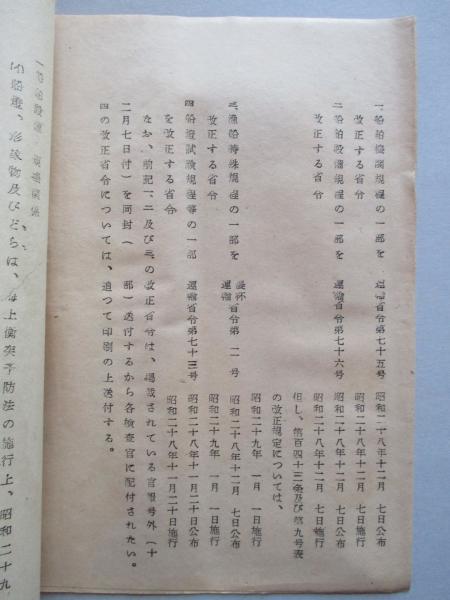 一、船舶機関規程の一部を 運輸省令第七十五号 昭和二十八年十二月 七日公布
改正する省令 昭和二十八年十二月 七日施行
二、船舶設備規程の一部を 運輸省令第七十六号 昭和二十八年十二月 七日公布
改正する省令 昭和二十八年十二月 七日施行
但し、第百四十三条及び第九号表
の改正規定については、
昭和二十九年 一月 一日施行
三、漁船特殊規程の一部を 農林運輸省令第 二 号 昭和二十八年十二月 七日公布
改正する省令 昭和二十九年 一月 一日施行
四、船燈試験規程等の一部 運輸省令第七十三号 昭和二十八年十一月二十日公布
を改正する省令 昭和二十八年十一月二十日施行
なお、前記一、二及び三、の改正省令は、掲載されている官報号外(十
二月七日付)を同封( 部)送付するから各検査官に配付されたい。
四の改正省令については、追つて印刷の上送付する。
関係
(イ)船燈、形象物及びどらは、海上衝突予防法の施行上、昭和二十九